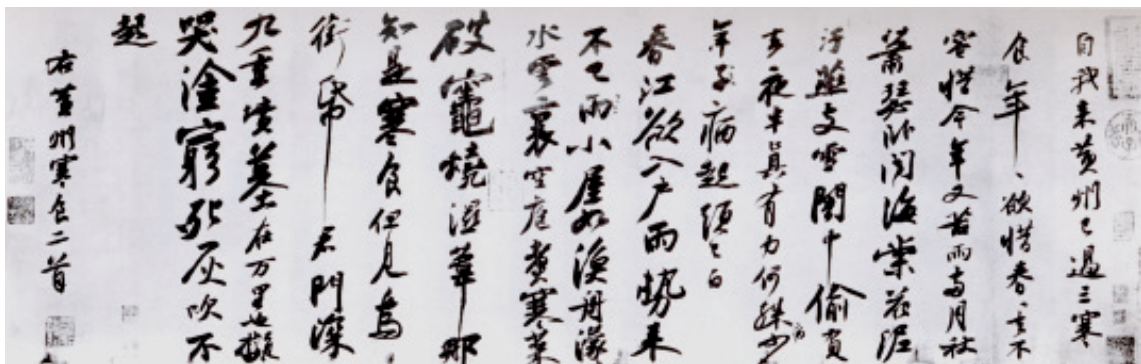 自我来黄州已過三寒
食年、欲惜春、去不
容惜今年又苦雨两月秋
蕭瑟卧聞海棠花泥
汙燕支雪闇中偷負
去夜半真有力何殊少
年子病起須已白
春江欲入户雨勢来
不已雨小屋如漁舟濛
水雲裏空庖煮寒菜
破竈燒濕葦那
知是寒食但見烏
銜帋君門深
九重墳墓在万里也擬
哭塗窮死灰吹不
起
右黄州寒食二首